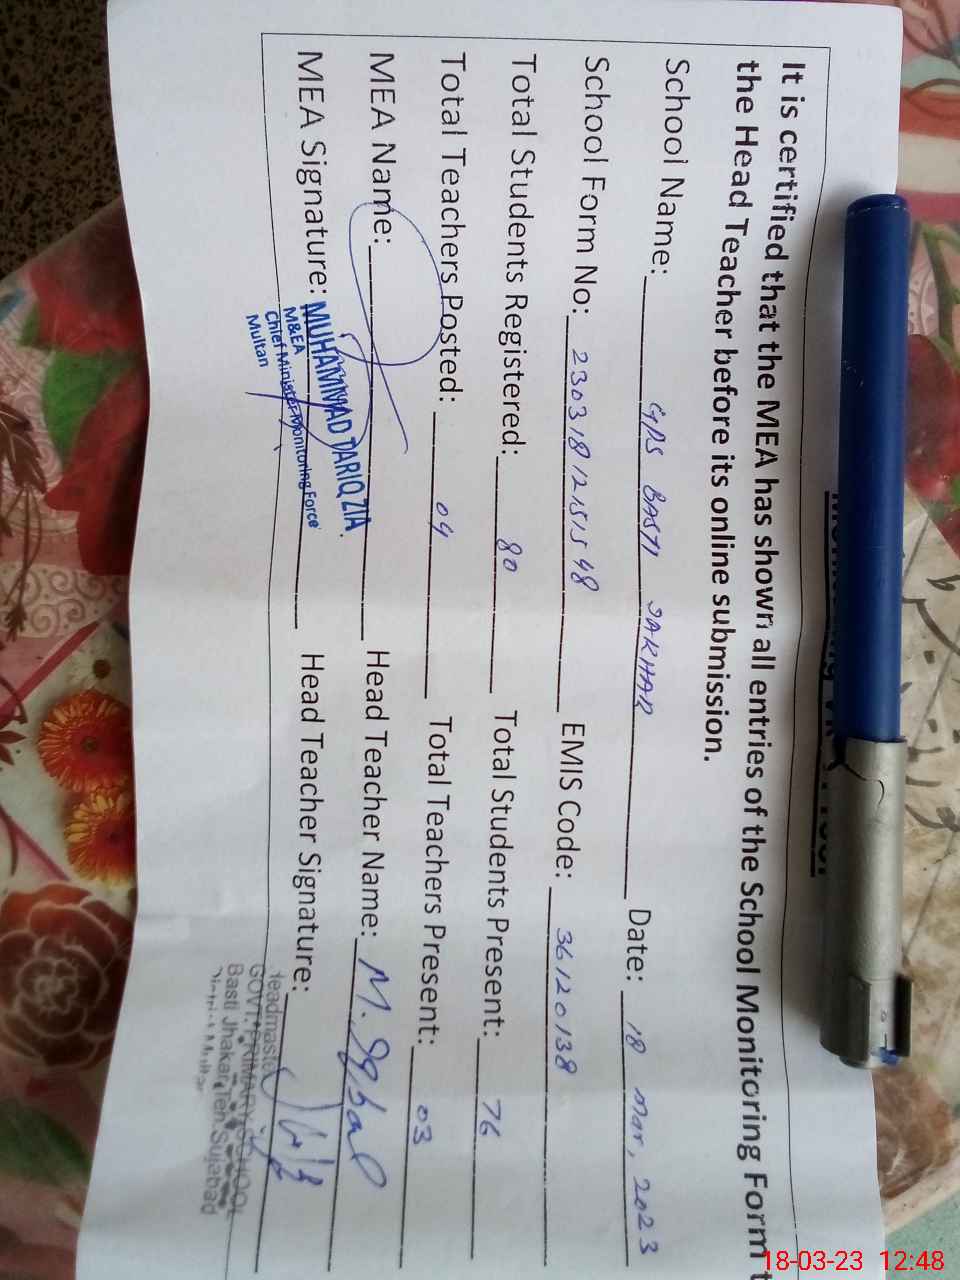 It is certified that the MEA has shown all entries of the School Monitoring Form t
the Head Teacher before its online submission.
School Name: GPS BASTI JAKHAR Date: 18 Mar, 2023
School Form No: 230318121515 48 EMIS Code: 36120138
Total Students Registered: 80 Total Students Present: 76
Total Teachers Posted: 04 Total Teachers Present: 03
MEA Name: MUHAMMAD TARIQ ZIA Head Teacher Name: M. Iqbal
MEA Signature: Head Teacher Signature:
M&EA
Chief Minister Monitoring Force
Multan
Headmaster
GOVT. PRIMARY SCHOOL
Basti Jhakar Teh Sujabad
District Multan
18-03-23 12:48